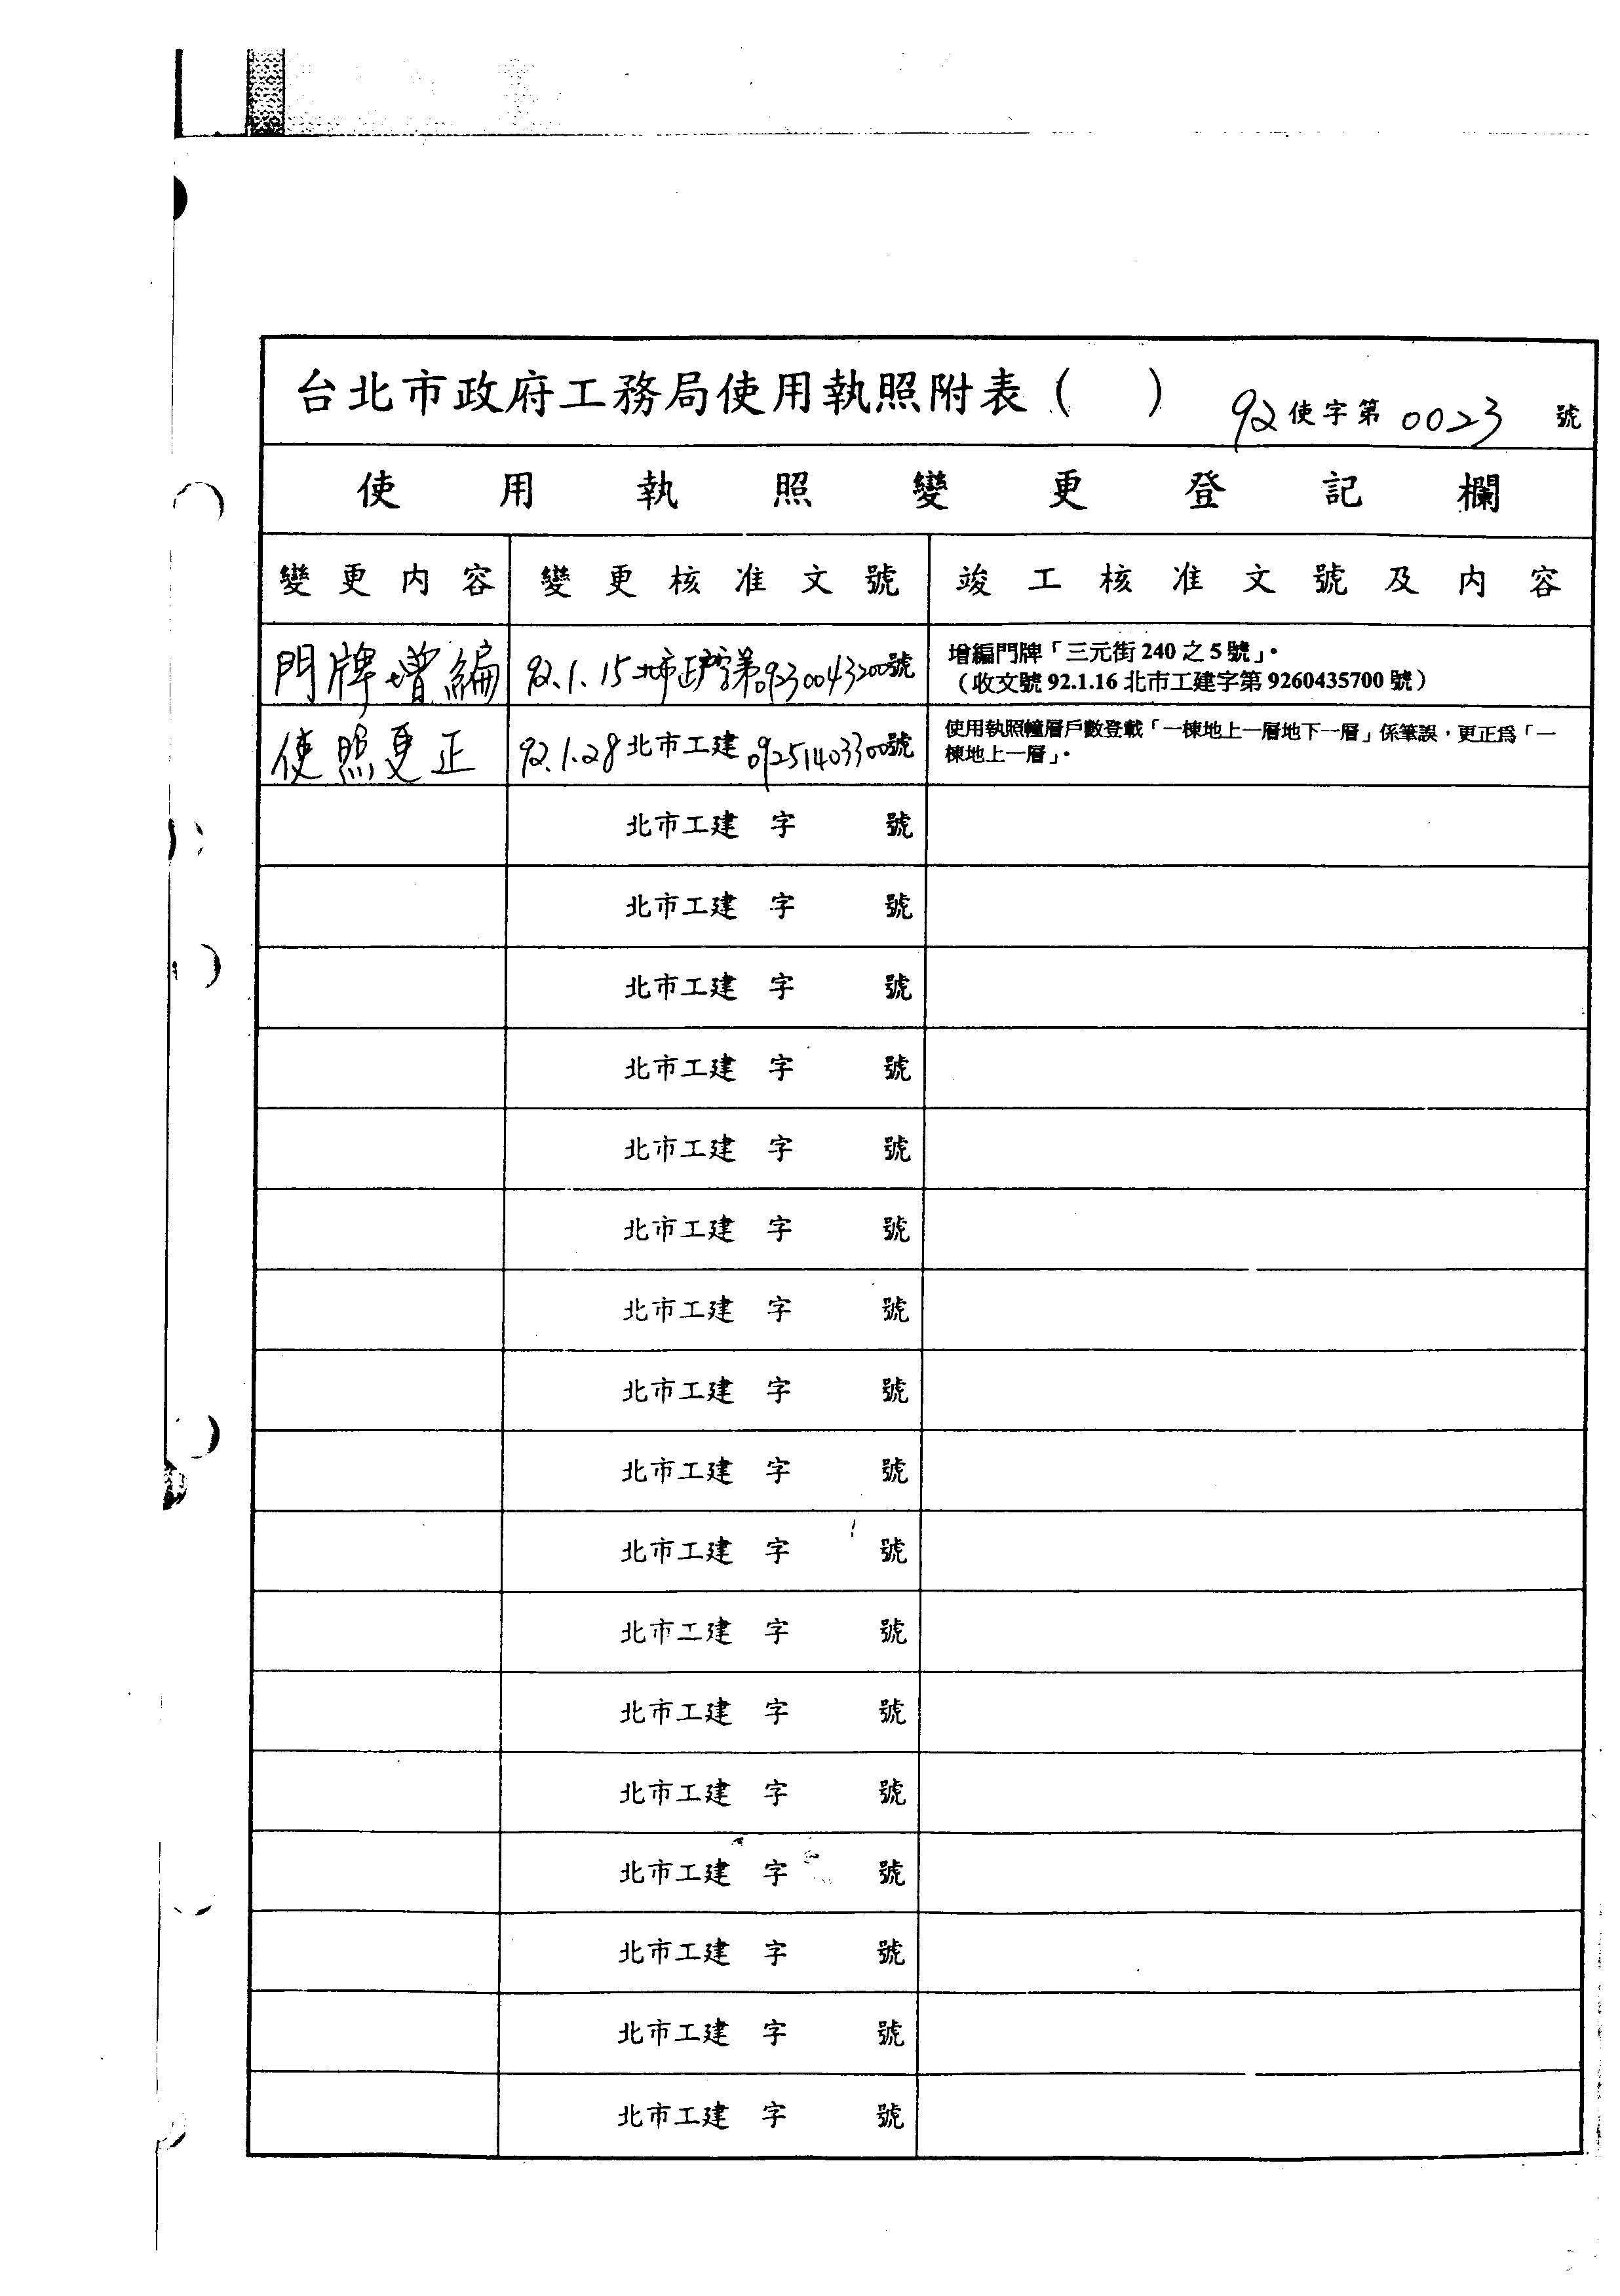 台北市政府工務局使用執照附表（　） 92使字第 0023 號
使用執照變更登記欄
變更內容 變更核准文號 竣工核准文號及內容
門牌增編 92.1.15 北市正戶字第09230043200號 增編門牌「三元街240之5號」。
（收文號92.1.16北市工建字第9260435700號）
使照更正 92.1.28 北市工建 09251403300號 使用執照幢層戶數登載「一棟地上一層地下一層」係筆誤，更正為「一
棟地上一層」。
北市工建 字 號
北市工建 字 號
北市工建 字 號
北市工建 字 號
北市工建 字 號
北市工建 字 號
北市工建 字 號
北市工建 字 號
北市工建 字 號
北市工建 字 號
北市工建 字 號
北市工建 字 號
北市工建 字 號
北市工建 字 號
北市工建 字 號
北市工建 字 號
北市工建 字 號